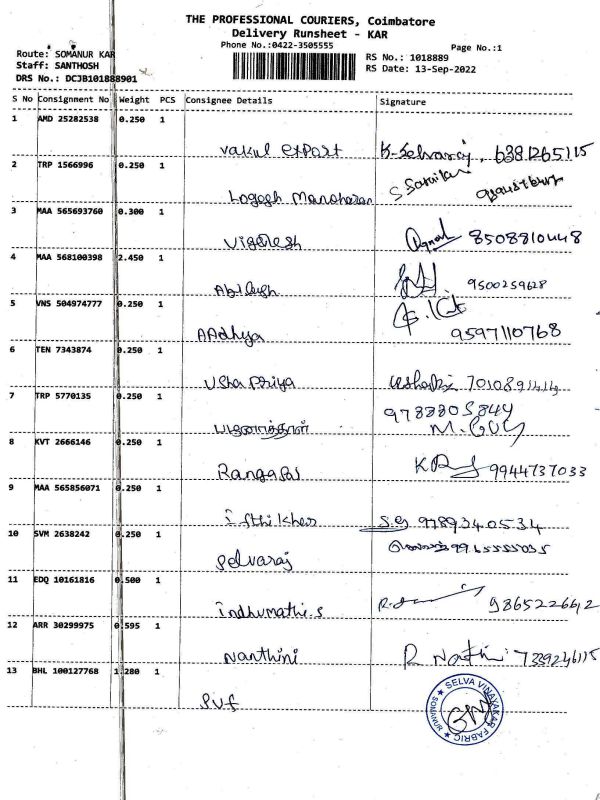 THE PROFESSIONAL COURIERS, Coimbatore
Delivery Runsheet - KAR
Phone No.:0422-3505555
Page No.:1
Route: SOMANUR KAR
RS No.: 1018889
Staff: SANTHOSH
RS Date: 13-Sep-2022
DRS No.: DCJB101888901
S No Consignment No Weight PCS Consignee Details Signature
1 AMD 25282538 0.250 1
Vakul export K-Selvaraj, 6381265115
2 TRP 1566996 0.250 1
Logesh Manoharan
3 MAA 565693760 0.300 1
Vignesh 8508810448
4 MAA 568100398 2.450 1
9500259628
5 VNS 504974777 0.250 1
AAdhya 9597110768
6 TEN 7343874 0.250 1
Usha Priya
7 TRP 5770135 0.250 1
8 KVT 2666146 0.250 1
9944737033
9 MAA 565856071 0.250 1
S.G 9789340534
10 SVM 2638242 0.250 1
Selvaraj
11 EDQ 10161816 0.500 1
Indhumathi.S 9865226612
12 ARR 30299975 0.595 1
Nanthini 7339246115
13 BHL 100127768 1.280 1
SVF
SELVA VINAYAKAR FABRIC
SOMANUR